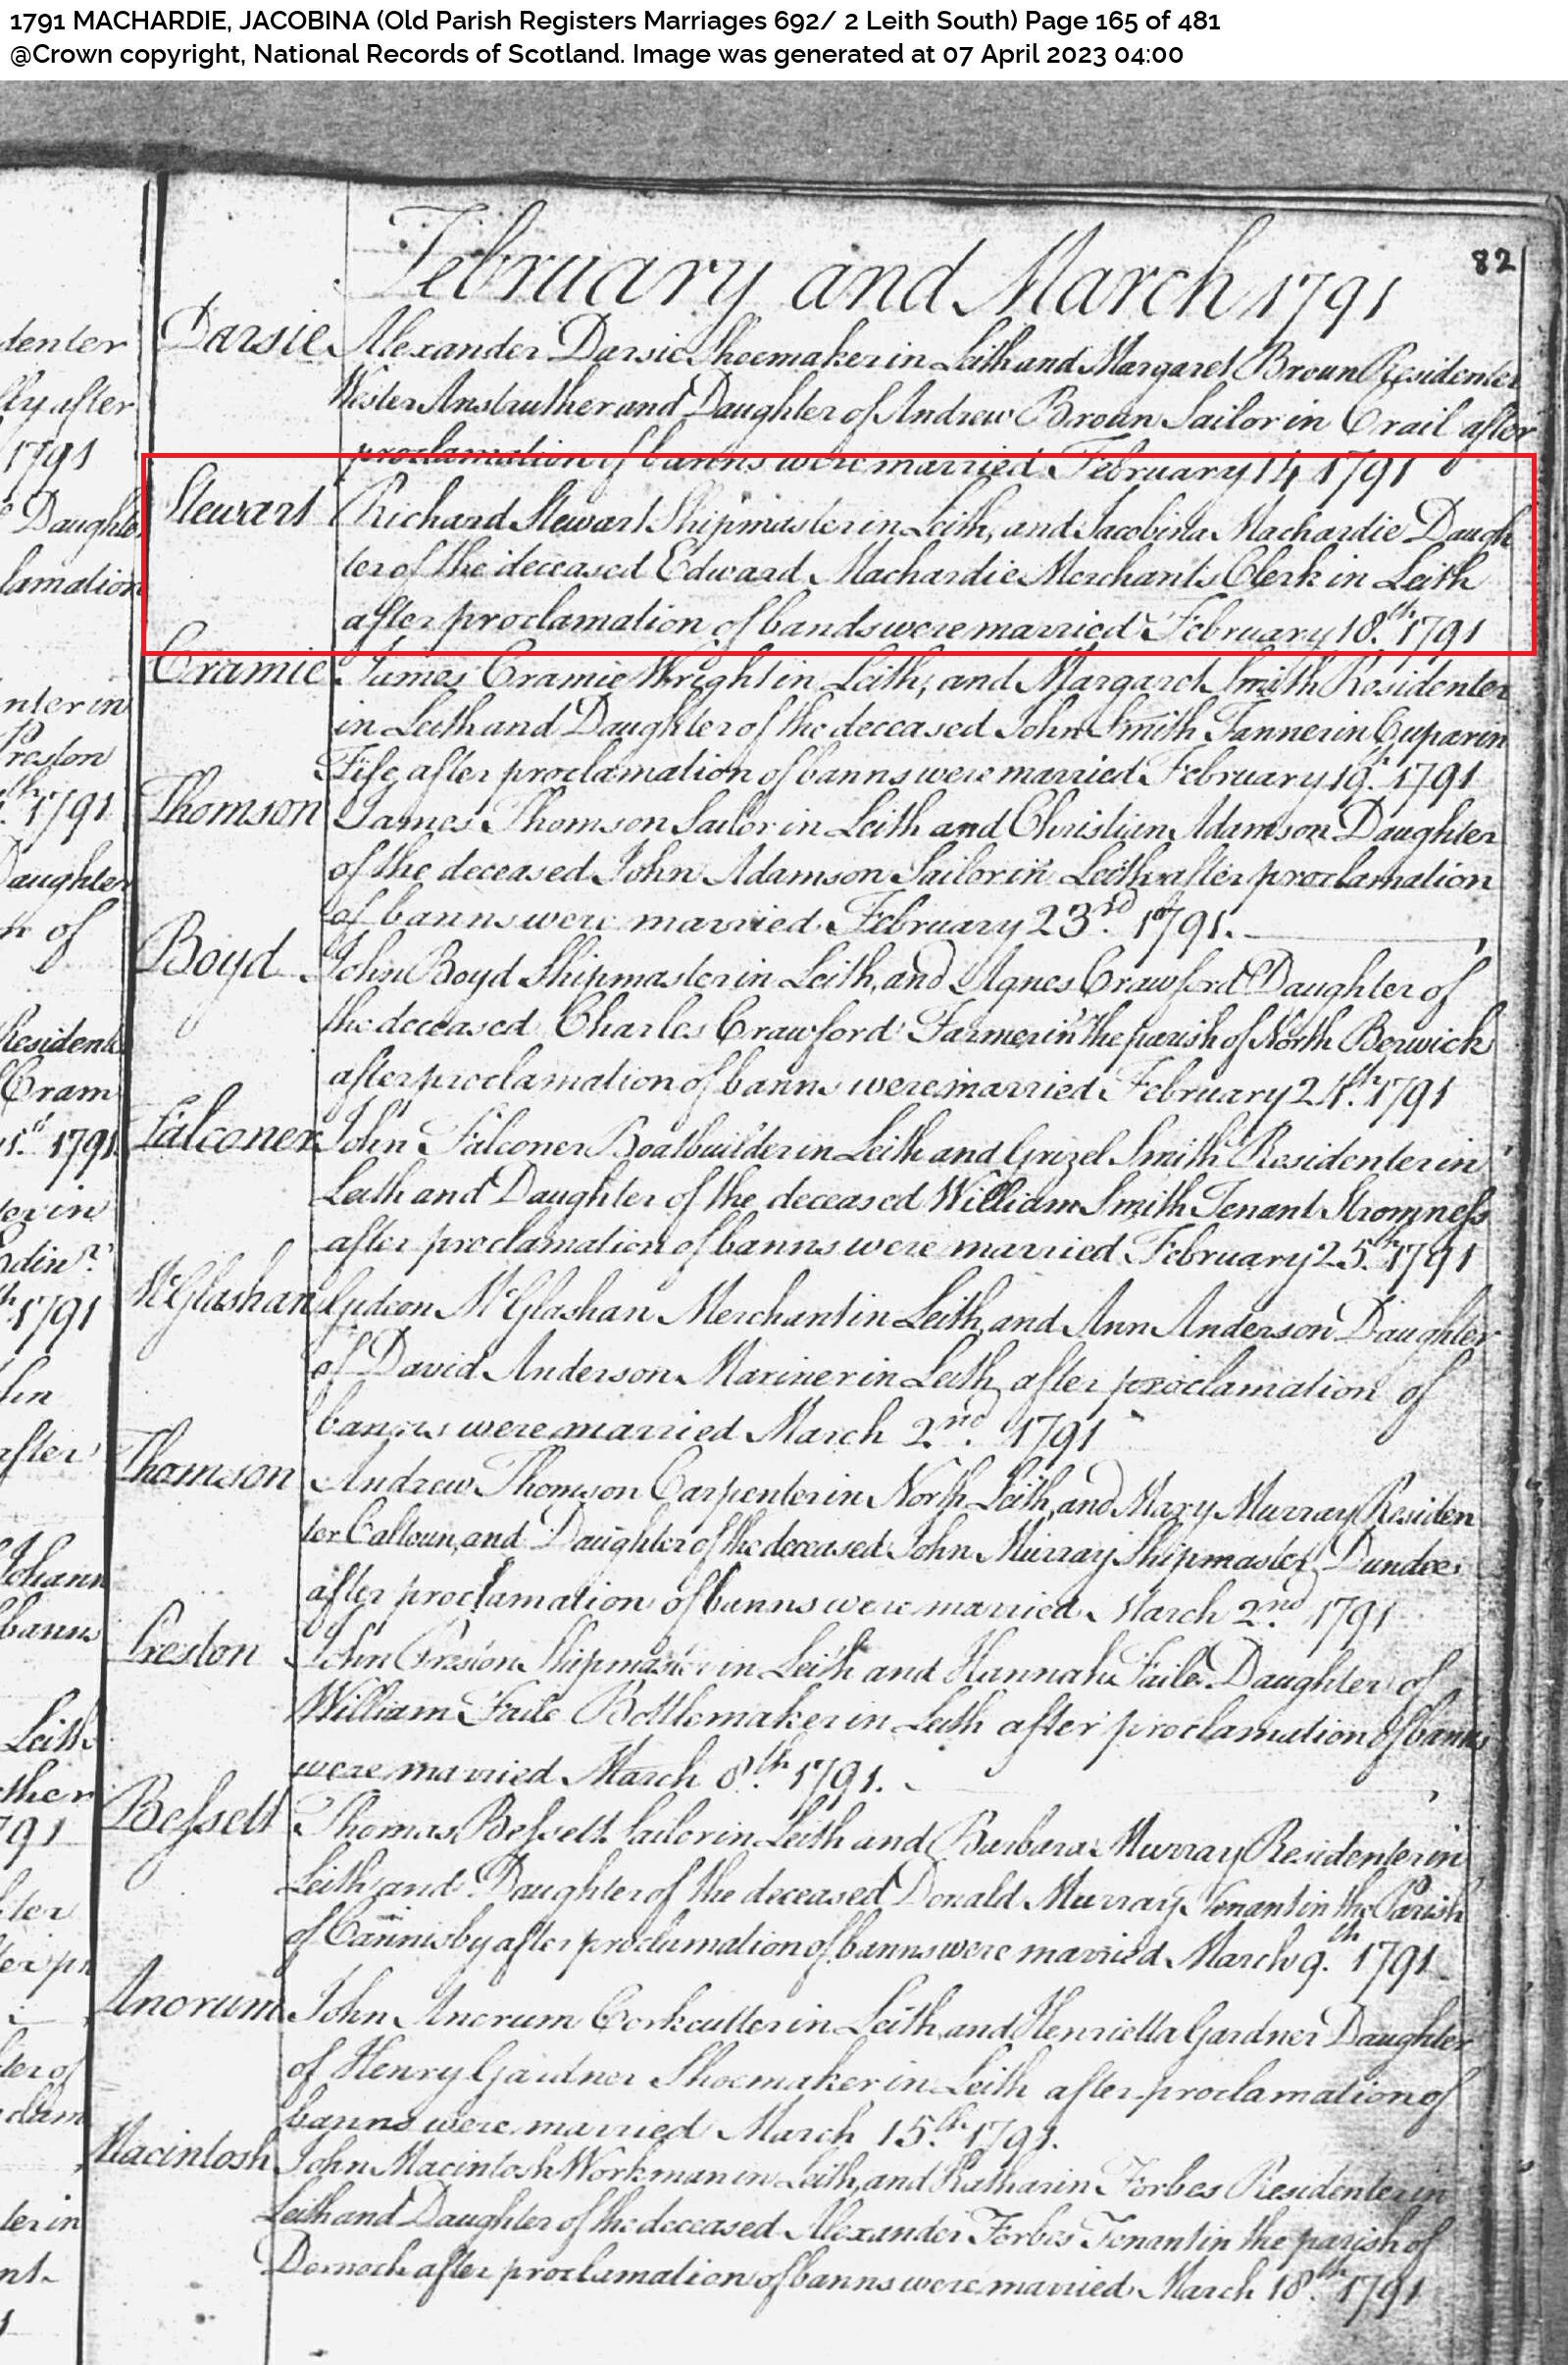 1791 MACHARDIE, JACOBINA (Old Parish Registers Marriages 692/ 2 Leith South) Page 165 of 481
@Crown copyright, National Records of Scotland. Image was generated at 07 April 2023 04:00
82
February and March 1791
Darsie Alexander Darsie Shoemaker in Leith and Margaret Broun Residenter
Wester Anstruther and Daughter of Andrew Broun Sailor in Crail after
proclamation of banns were married February 14 1791
Stewart Richard Stewart Shipmaster in Leith, and Jacobina Machardie Daugh
ter of the deceased Edward Machardie Merchants Clerk in Leith
after proclamation of bands were married February 18.th 1791
Cramie James Cramie Wright in Leith, and Margaret Smith Residenter
in Leith and Daughter of the deceased John Smith Tanner in Cupar in
Fife after proclamation of banns were married February 19.th 1791
Thomson James Thomson Sailor in Leith and Christian Adamson Daughter
of the deceased John Adamson Sailor in Leith after proclamation
of banns were married February 23.rd 1791.
Boyd John Boyd Shipmaster in Leith, and Agnes Crawford Daughter of
the deceased Charles Crawford Farmer in the parish of North Berwick
after proclamation of banns were married February 24.th 1791
Falconer John Falconer Boatbuilder in Leith and Grizel Smith Residenter in
Leith and Daughter of the deceased William Smith Tenant Stromness
after proclamation of banns were married February 25.th 1791
McGlashan Gideon McGlashan Merchant in Leith, and Ann Anderson Daughter
of David Anderson Mariner in Leith, after proclamation of
banns were married March 2.nd 1791
Thomson Andrew Thomson Carpenter in North Leith, and Mary Murray Residen
ter Caltoun, and Daughter of the deceased John Murray Shipmaster Dundee
after proclamation of banns were married March 2.nd 1791
Preston John Preston Shipmaster in Leith and Hannah Faile Daughter of
William Faile Bottlemaker in Leith after proclamation of banns
were married March 8.th 1791.
Bessett Thomas Bessett Sailor in Leith and Barbara Murray Residenter in
Leith and Daughter of the deceased Donald Murray Tenant in the Parish
of Cannisby after proclamation of banns were married March 9.th 1791
Ancrum John Ancrum Corkcutter in Leith, and Henrietta Gardner Daughter
of Henry Gardner Shoemaker in Leith after proclamation of
banns were married March 15.th 1791.
Macintosh John Macintosh Workman in Leith, and Katharin Forbes Residenter in
Leith and Daughter of the deceased Alexander Forbes Tenant in the parish of
Dornoch after proclamation of banns were married March 18.th 1791